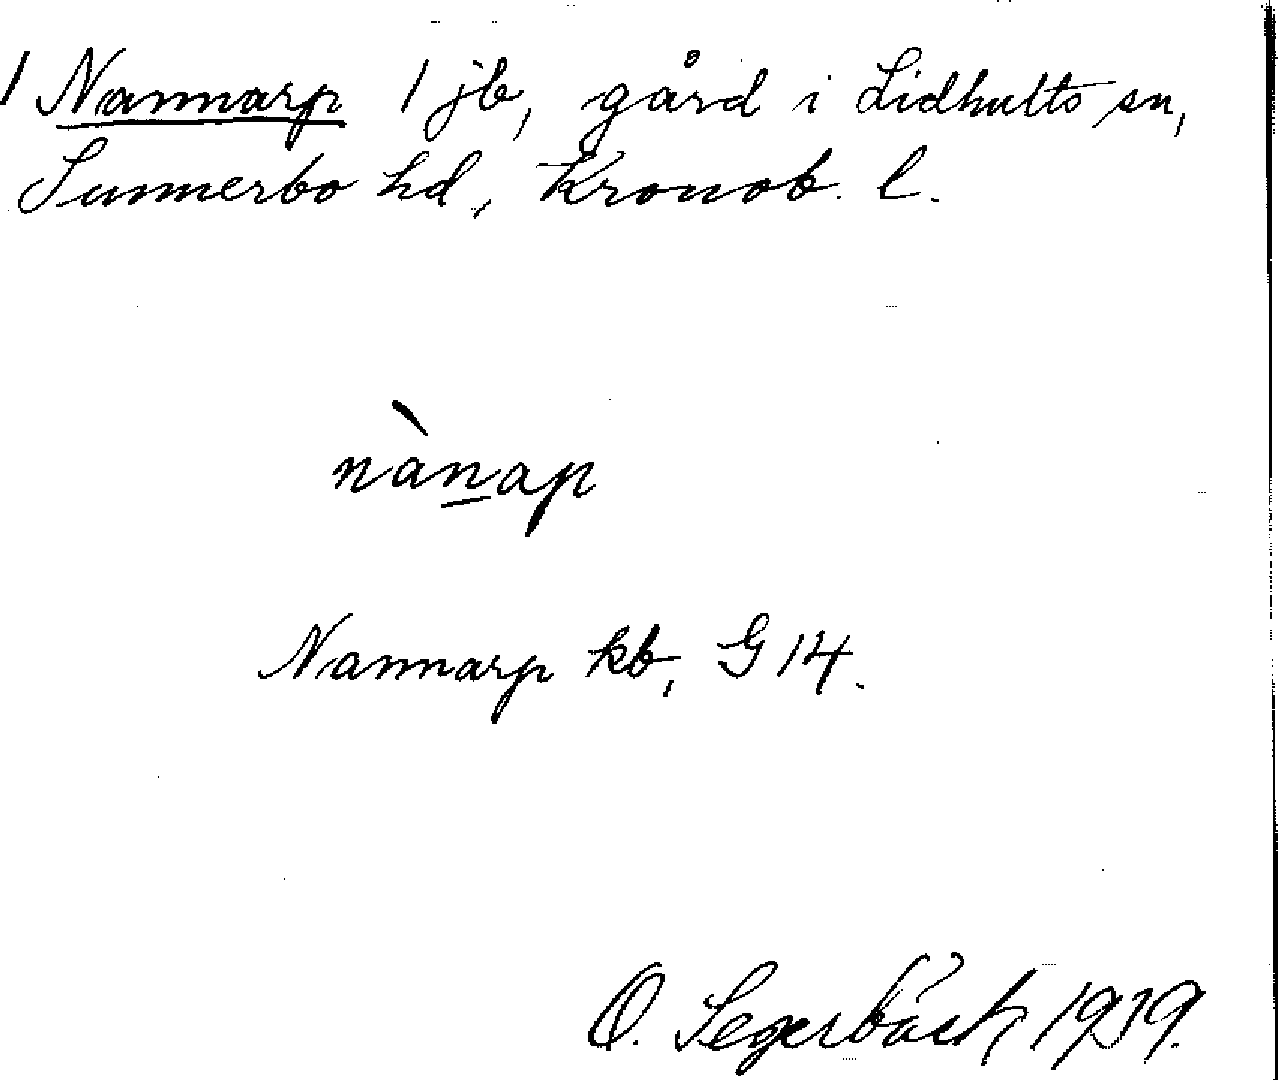 1 Nannarp 1 jb, gård i Lidhults sn,
Sunnerbo hd, Kronob. l.
nànap
Nannarp kb, G 14.
O. Segerbäck 1919.